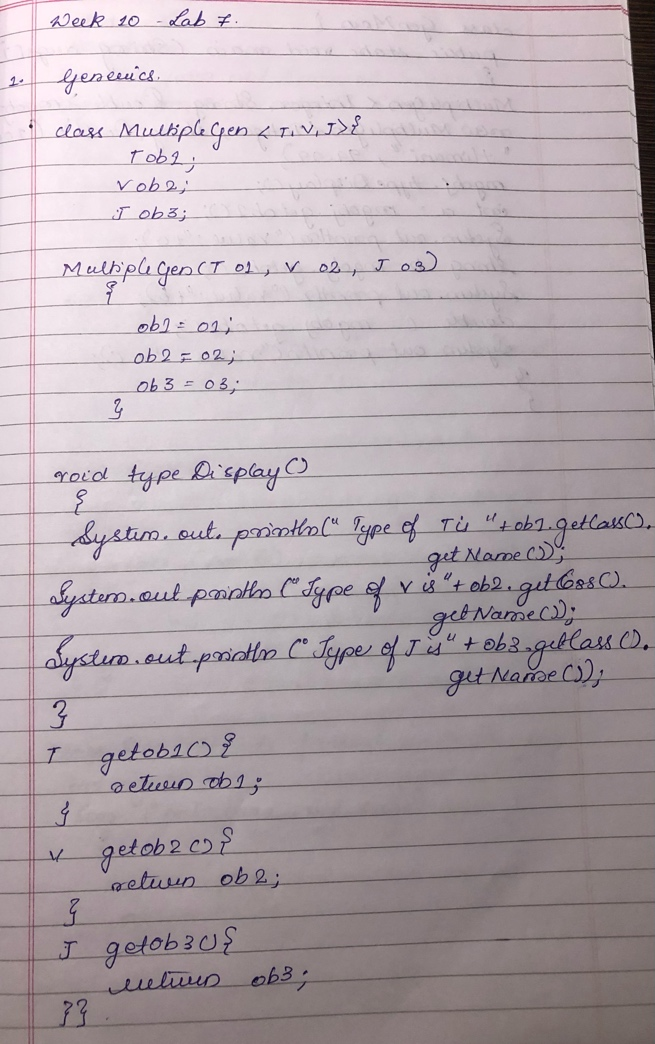 Week 10 - Lab 7.
1. Generics.
class MultipleGen <T, V, J>{
T ob1;
V ob2;
J ob3;
MultipleGen(T o1, V o2, J o3)
{
ob1 = o1;
ob2 = o2;
ob3 = o3;
}
void type Display()
{
System.out.println(" Type of T is "+ob1.getClass().
getName());
System.out.println("Type of V is"+ ob2.getClass().
getName());
System.out.println(" Type of J is" + ob3.getClass().
getName());
}
T getob1(){
return ob1;
}
V getob2(){
return ob2;
}
J getob3(){
return ob3;
}}